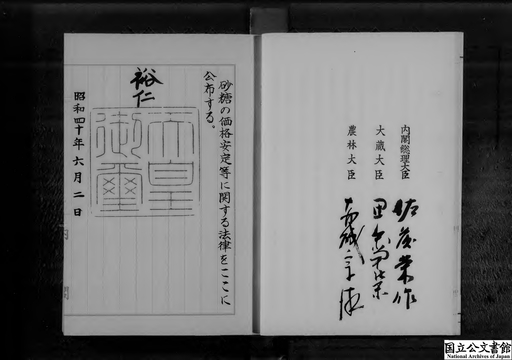 内閣総理大臣 佐藤栄作
大蔵大臣 田中角栄
農林大臣 赤城宗徳
砂糖の価格安定等に関する法律をここに
公布する。
裕仁
天皇
御璽
昭和四十年六月二日
国立公文書館
National Archives of Japan